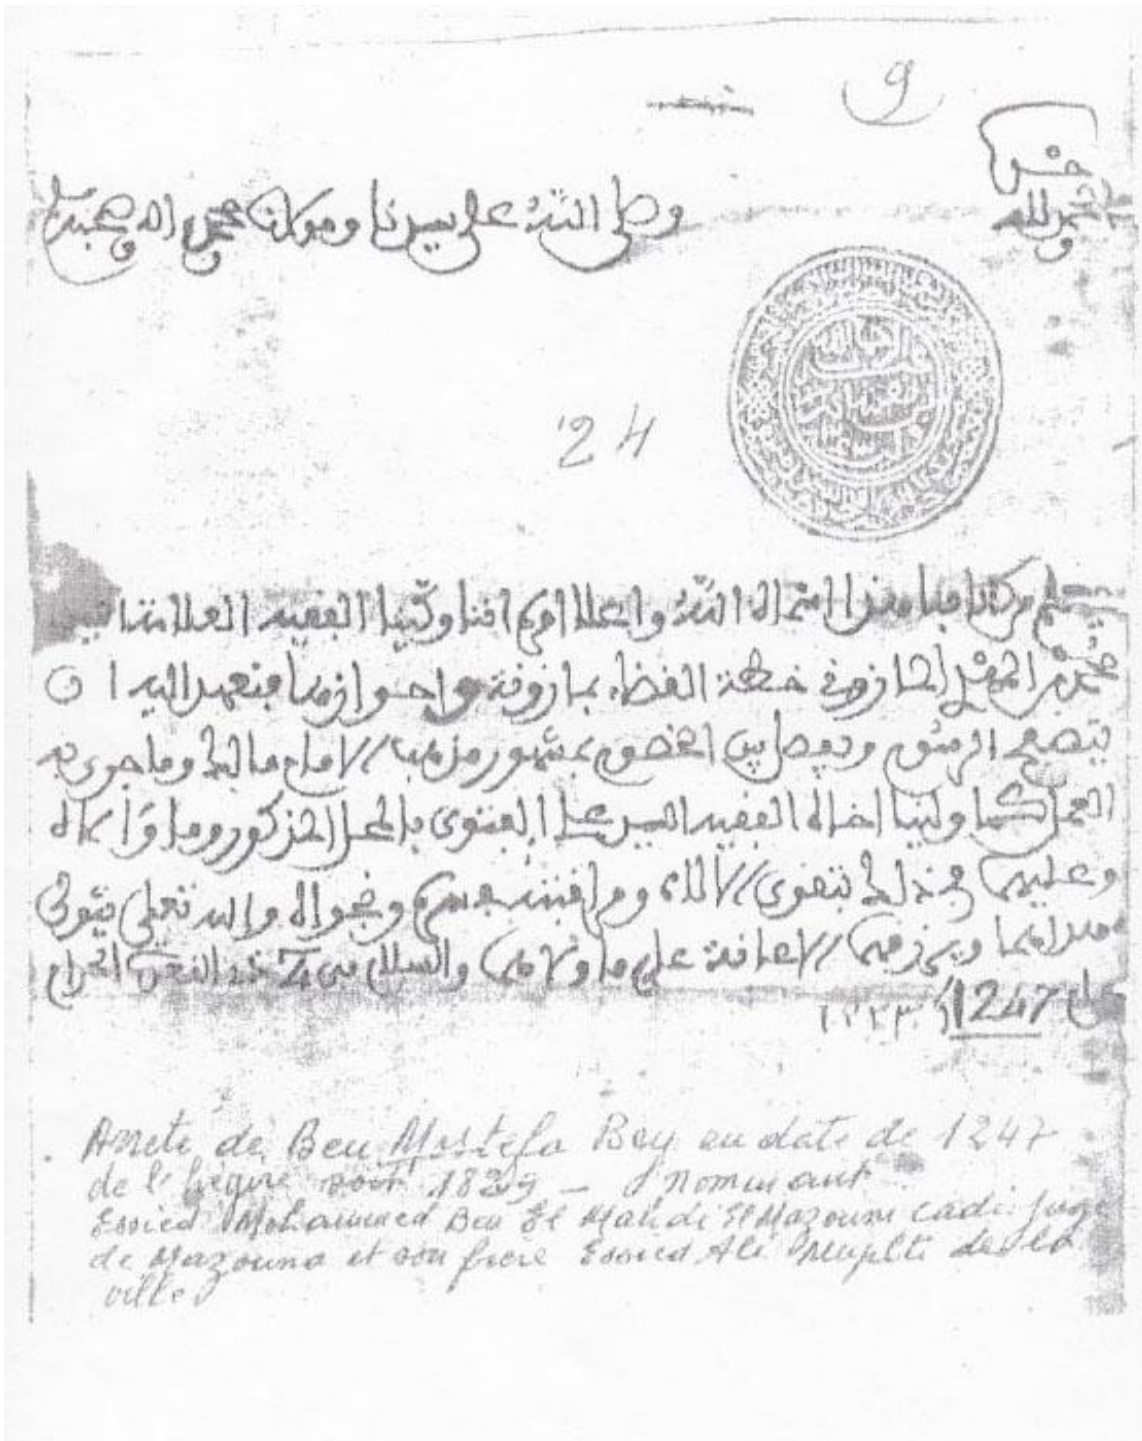 9
الحمد لله وحده
وصلى الله على سيدنا ومولانا محمد واله وصحبه
24
يعلم من كتابنا هذا اسماه الله واعلا امره اننا ولينا الفقيه العلامة السيد
محمد بن المهدي المازوني خطة القضاء بمازونة واحوازها فنعهد اليه ان
يتصفح الرسوم ويفصل بين الخصوم بمشهور مذهب الامام مالك وما جرى به
العمل كما ولينا اخاه الفقيه السيد علي الفتوى بالمحل المذكور وما والاه
وعليهما في ذلك بتقوى الله ومراقبته في سره ونجواه والله تعلى يتولى
هداهما ويرزقهما الاعانة على ما ولاهما والسلام في ذي القعدة الحرام
عام 1247
Arrete de Ben Mostefa Bey en date de 1247
de l'hegire soit 1829 – Nommant
Essied Mohammed Ben El Mahdi El Mazouni cadi juge
de Mazouna et son frere Essied Ali Muphti de la
ville